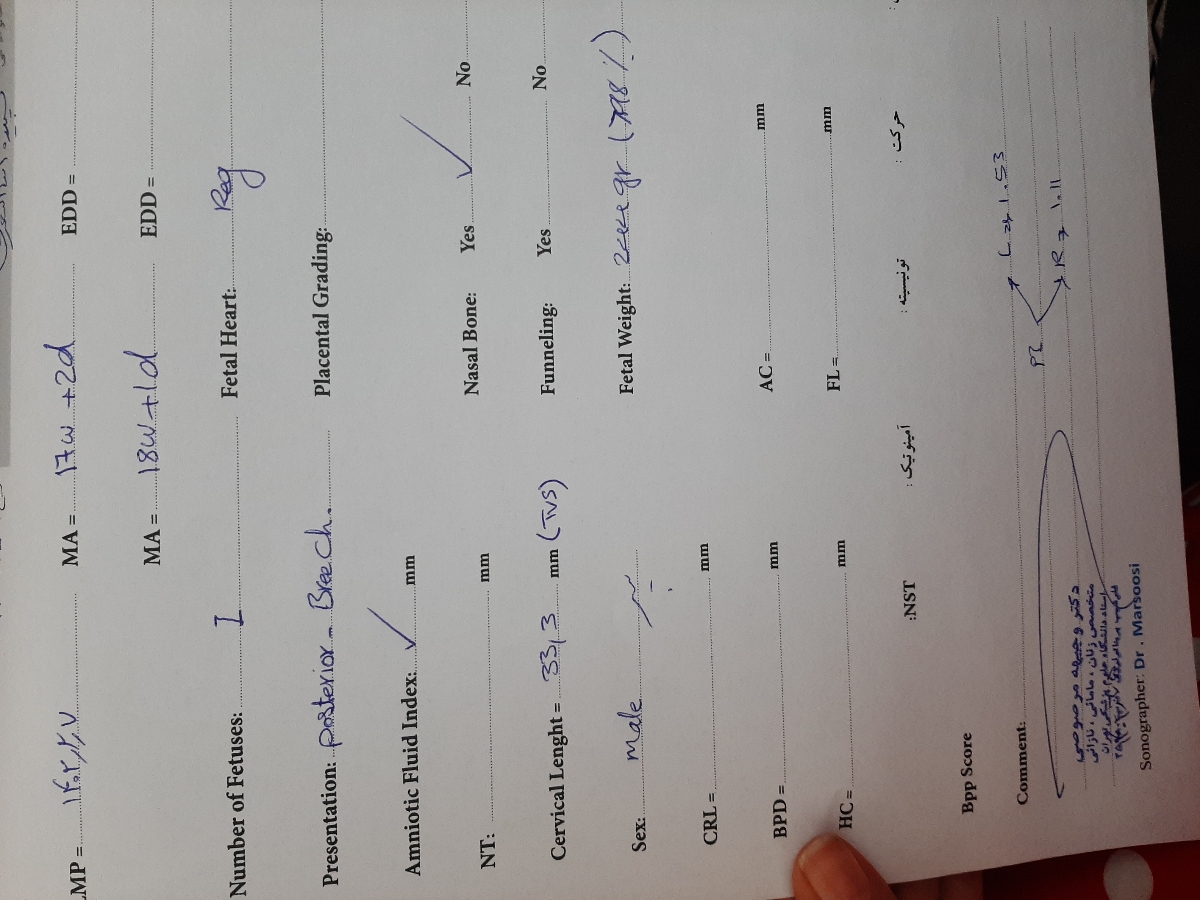 LMP = ۱۴۰۲٫۲٫۷ MA = 17w +2d EDD =
MA = 18w+1d EDD =
Number of Fetuses: I Fetal Heart: Reg
Presentation: posterior - Breech. Placental Grading:
Amniotic Fluid Index: ✓ mm
NT: mm Nasal Bone: Yes ✓ No
Cervical Lenght = 33,3 mm (TVS) Funneling: Yes No
Sex: male Fetal Weight: gr
CRL = mm
BPD = mm AC = mm
HC = mm FL = mm
NST: آمینوتیک : تونیسیته : حرکت :
Bpp Score
Comment: L → 1.53
PI
R → 1.11
دکتر وجیهه مرصوصی
متخصص زنان ، مامائی ، نازائی
Sonographer: Dr . Marsoosi